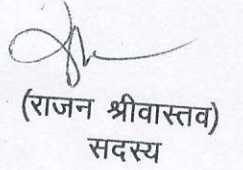 (राजन श्रीवास्तव)
सदस्य